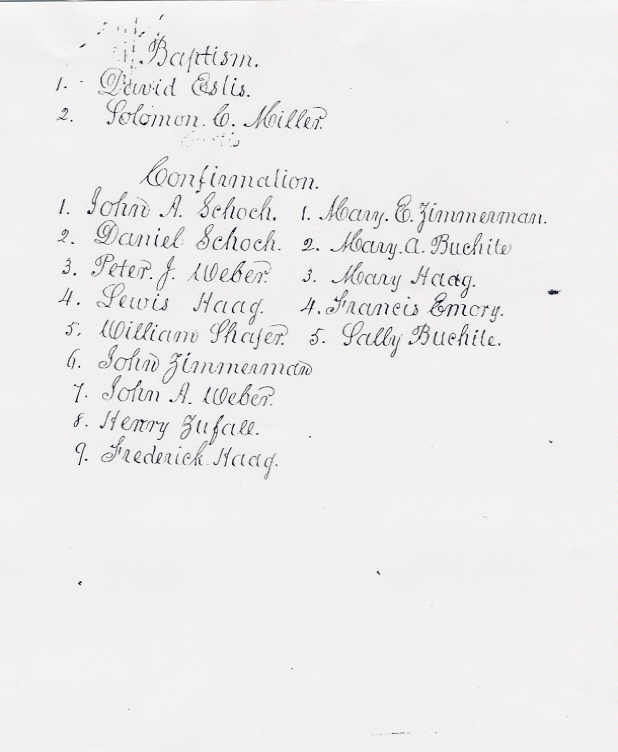 Baptism.
1. David Eslis.
2. Solomon. C. Miller.
Confirmation.
1. John A. Schoch. 1. Mary. E. Zimmerman.
2. Daniel Schoch. 2. Mary. A. Buchite
3. Peter. J. Weber. 3. Mary Haag.
4. Lewis Haag. 4. Francis Emory.
5. William Shafer. 5. Sally Buchite.
6. John Zimmerman
7. John A. Weber.
8. Henry Zufall.
9. Frederick Haag.